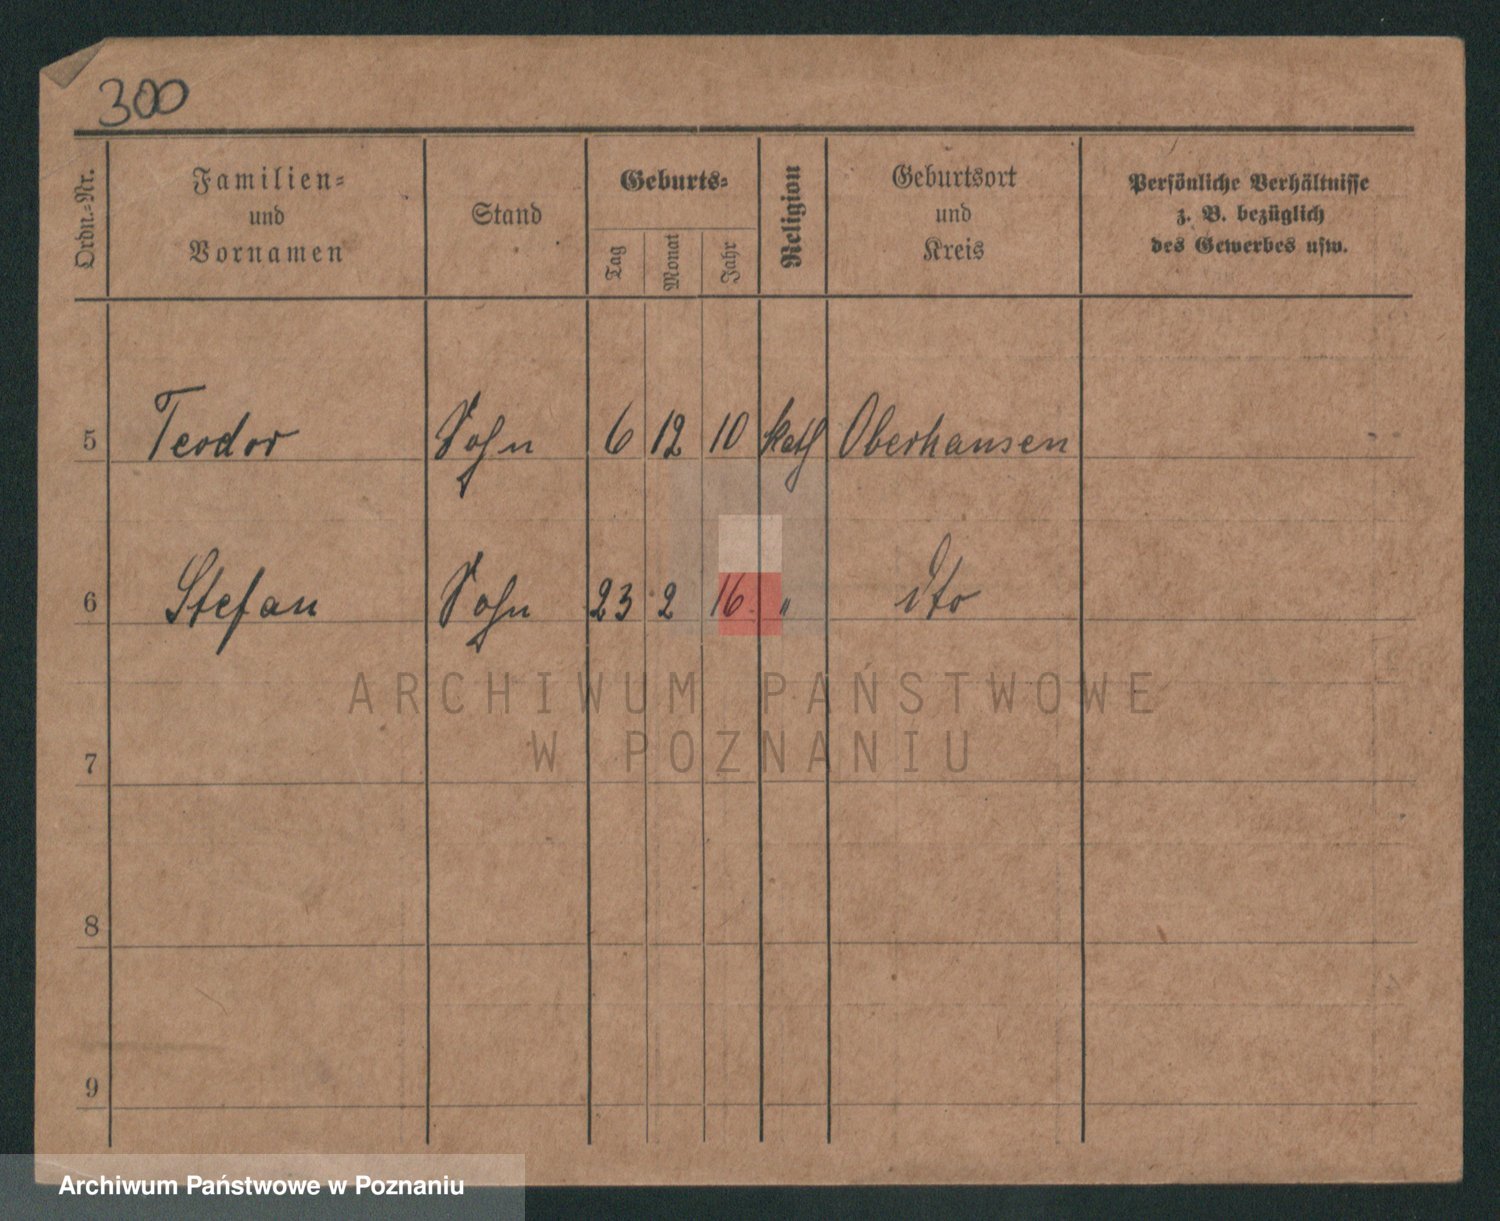 300
Ordn.-Nr.
Familien-
und
Vornamen
Stand
Geburts-
Tag
Monat
Jahr
Religion
Geburtsort
und
Kreis
Persönliche Verhältnisse
z. B. bezüglich
des Gewerbes usw.
5 Teodor Sohn 6 12 10 kath Oberhausen
6 Stefan Sohn 23 2 16. " dto
ARCHIWUM PAŃSTWOWE
W POZNANIU
7
8
9
Archiwum Państwowe w Poznaniu